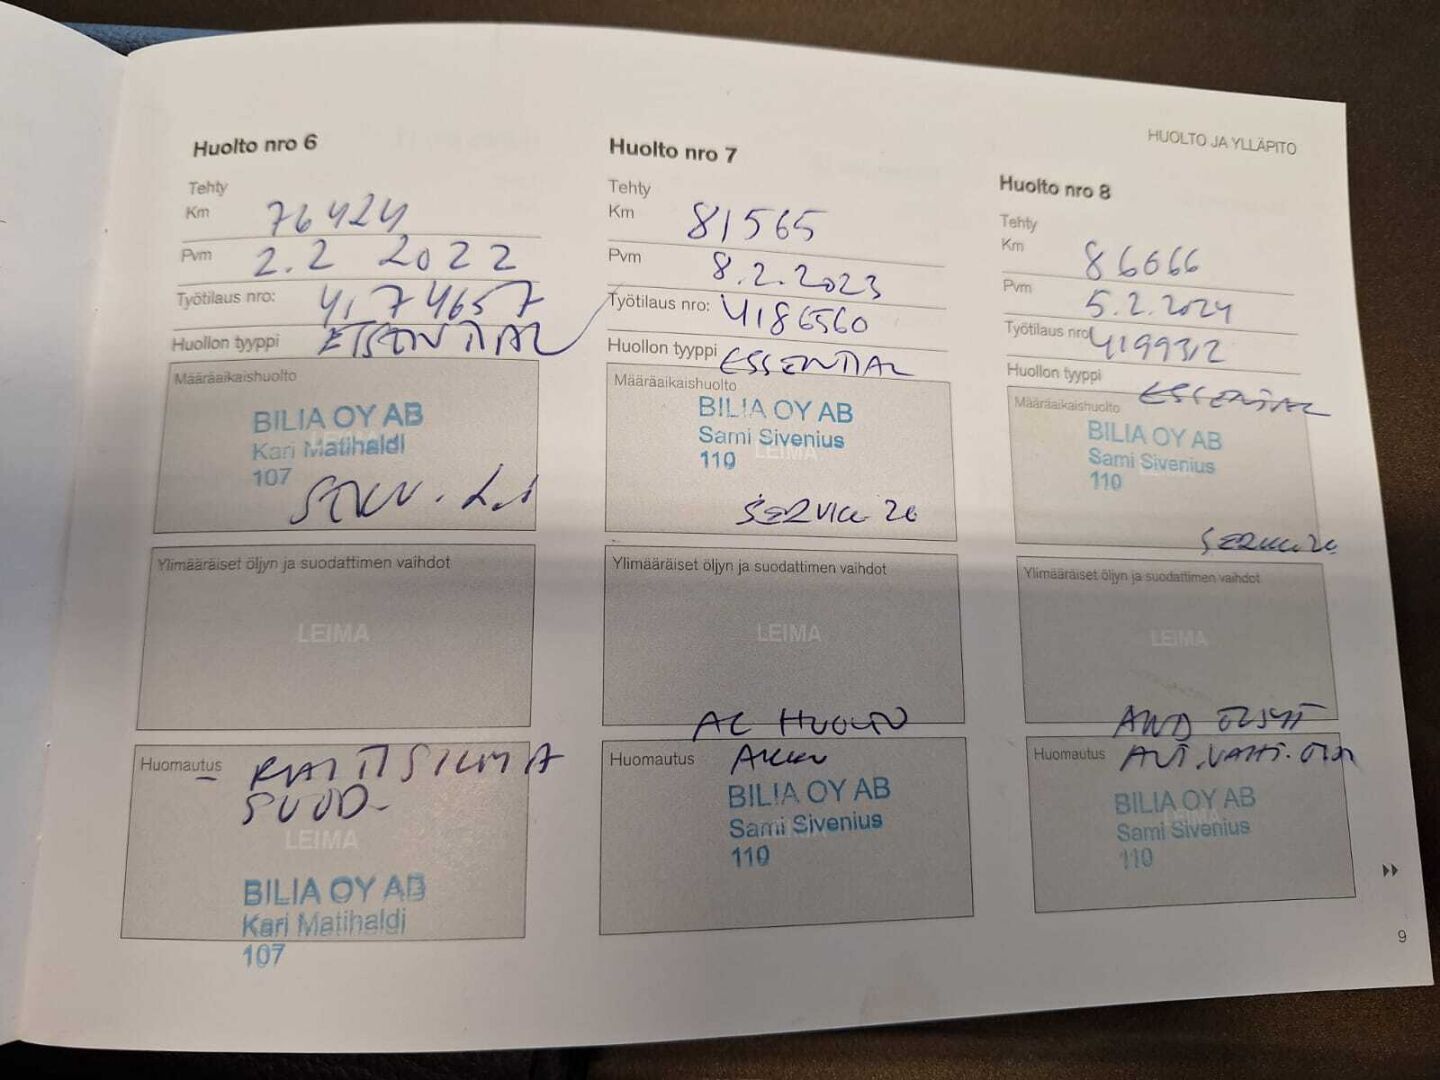 HUOLTO JA YLLÄPITO
Huolto nro 6
Tehty
Km 76424
Pvm 2.2 2022
Työtilaus nro: 4174657
Huollon tyyppi ESSENTIAL
Määräaikaishuolto
BILIA OY AB
Kari Matihaldi
107
Ylimääräiset öljyn ja suodattimen vaihdot
LEIMA
Huomautus - RAITISILMA
SUOD-
LEIMA
BILIA OY AB
Kari Matihaldi
107
Huolto nro 7
Tehty
Km 81565
Pvm 8.2.2023
Työtilaus nro: 4186560
Huollon tyyppi ESSENTIAL
Määräaikaishuolto
BILIA OY AB
Sami Sivenius
110 LEIMA
SERVICE 20
Ylimääräiset öljyn ja suodattimen vaihdot
LEIMA
AC HUOLTO
Huomautus AKKU
BILIA OY AB
Sami Sivenius
110
Huolto nro 8
Tehty
Km 86066
Pvm 5.2.2024
Työtilaus nro 4199312
Huollon tyyppi ESSENTIAL
Määräaikaishuolto
BILIA OY AB
Sami Sivenius
110
SERVICE 20
Ylimääräiset öljyn ja suodattimen vaihdot
LEIMA
AWD ÖLJYT
Huomautus AUT.VAIHT.
BILIA OY AB
Sami Sivenius
110
9